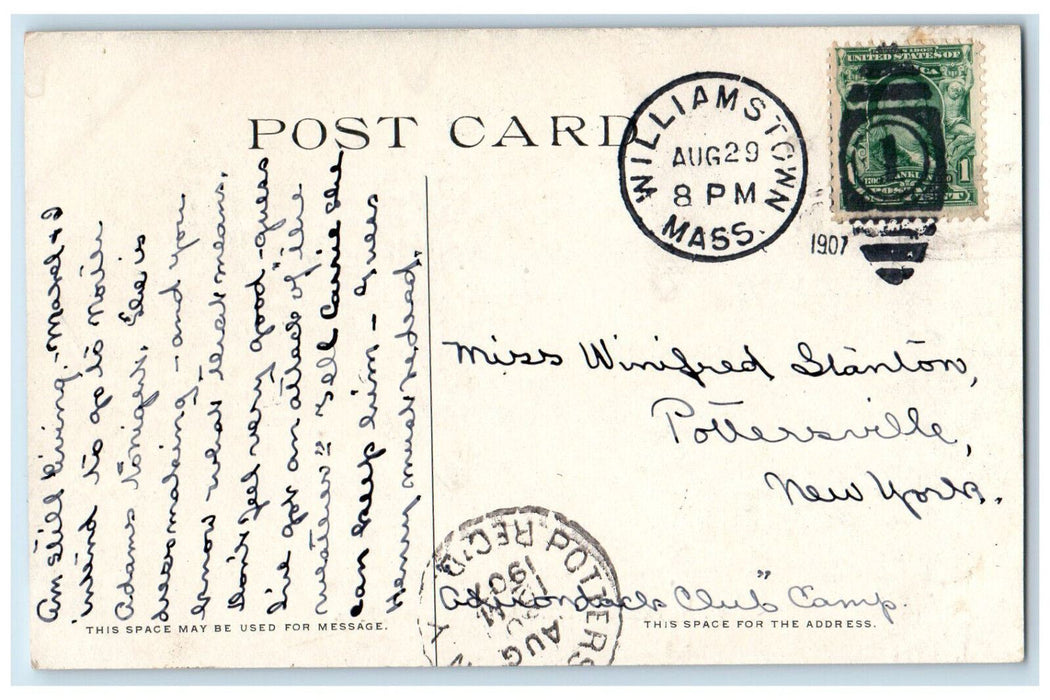 POST CARD
WILLIAMSTOWN
AUG 29
8 PM
MASS.
1907
UNITED STATES OF
1
Am still living. Mabel & I
intend to go to North
Adams tonight. She is
dressmaking - and you
know what that means.
Don't feel very good - guess
I've got an attack of the
"weather" Tell Carrie she
can keep him - Guess
Henry must be dead.
Miss Winifred Stanton,
Pottersville,
New York.
Adirondack Club" Camp.
POTTERS
REC'D
AUG
1907
THIS SPACE MAY BE USED FOR MESSAGE.
THIS SPACE FOR THE ADDRESS.